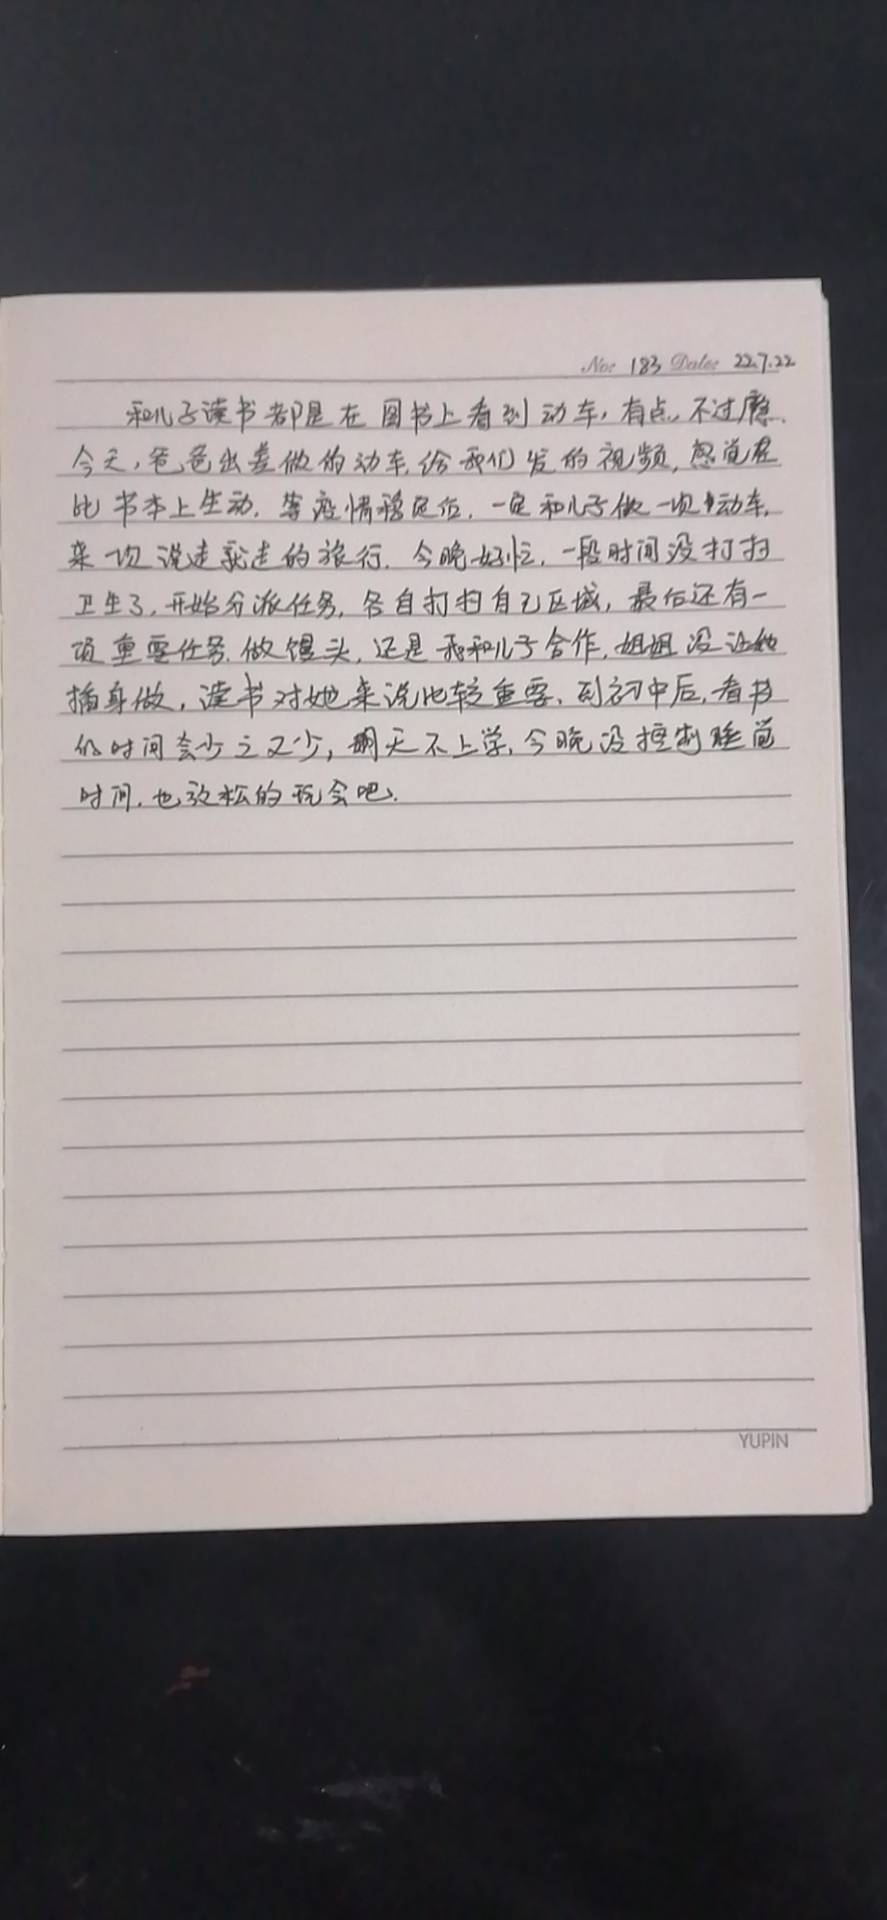 No: 183 Date: 22.7.22
和儿子读书都是在图书上看到动车,有点不过瘾.
今天,爸爸出差做的动车,给我们发的视频,感觉在
比书本上生动.等疫情稳定后.一定和儿子做一项动车,
来一项说走就走的旅行.今晚好忙,一段时间没打扫
卫生了,开始分派任务,各自打扫自己区域,最后还有一
项重要任务.做馒头,还是我和儿子合作,姐姐没让她
插身做,读书对她来说比较重要、到初中后,看书
的时间会少之又少,明天不上学,今晚没控制睡觉
时间,也放松的玩会吧.
YUPIN